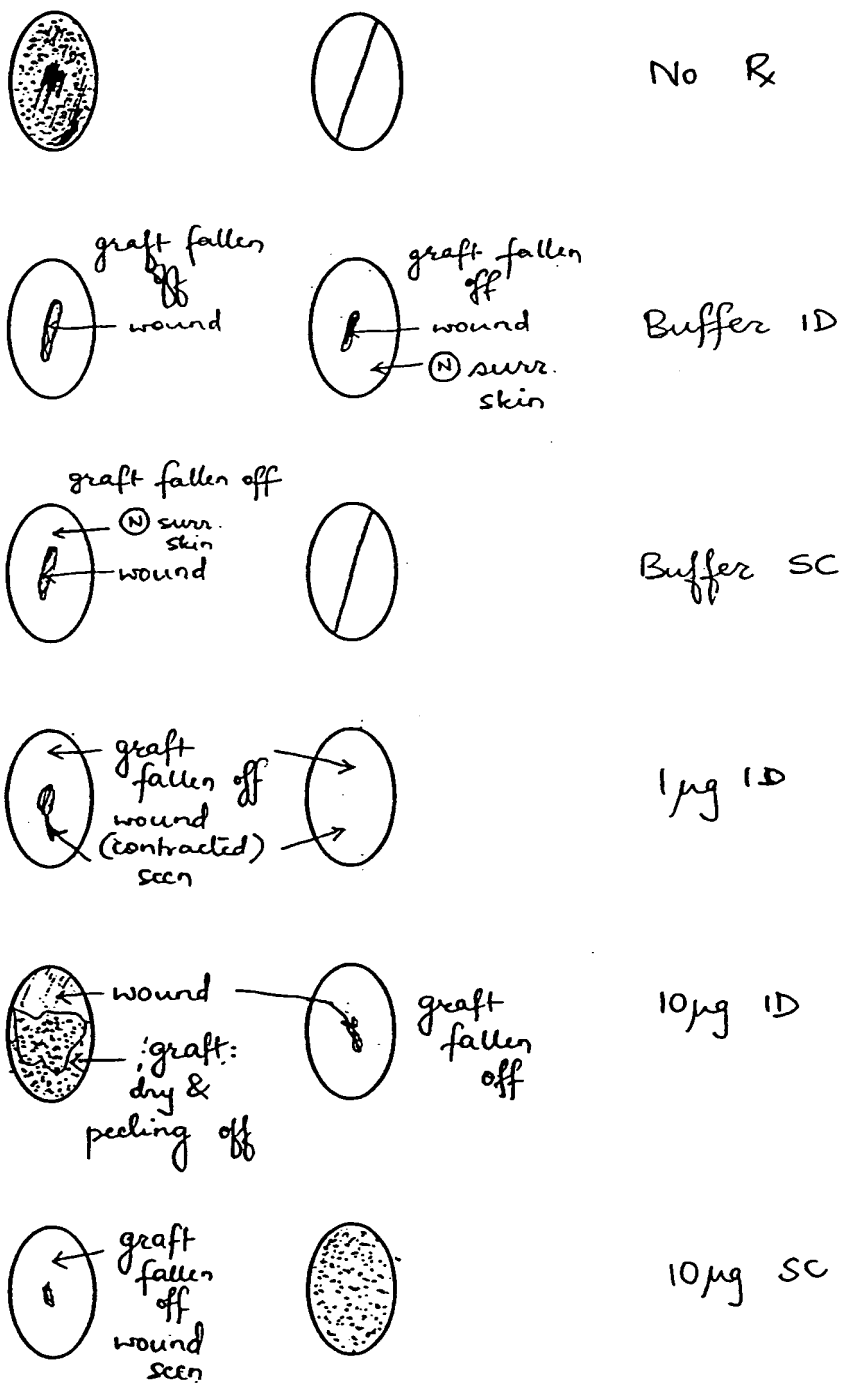 No Rx
graft fallen
off
wound
graft fallen
off
wound
Ⓝ surr.
skin
Buffer ID
graft fallen off
Ⓝ surr.
skin
wound
Buffer SC
graft
fallen off
wound
(contracted)
seen
1 μg ID
wound
graft:
dry &
peeling off
graft
fallen
off
10μg ID
graft
fallen
off
wound
seen
10μg SC